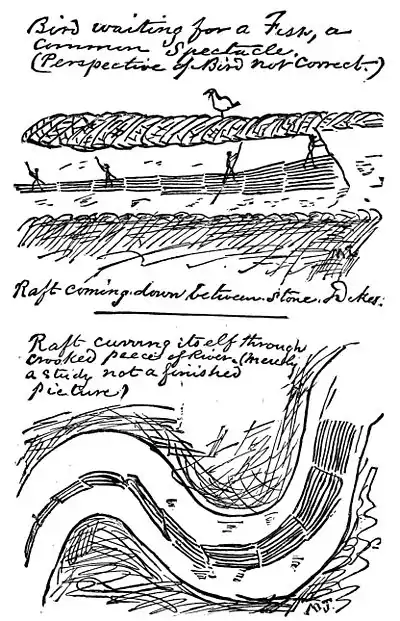 Bird waiting for a Fish, a
common Spectacle.
(Perspective of Bird not correct.)
M.T.
Raft coming down between stone Dikes.
Raft curving itself through
crooked peece of River. (Merely
a study not a finished
picture)
M.T.